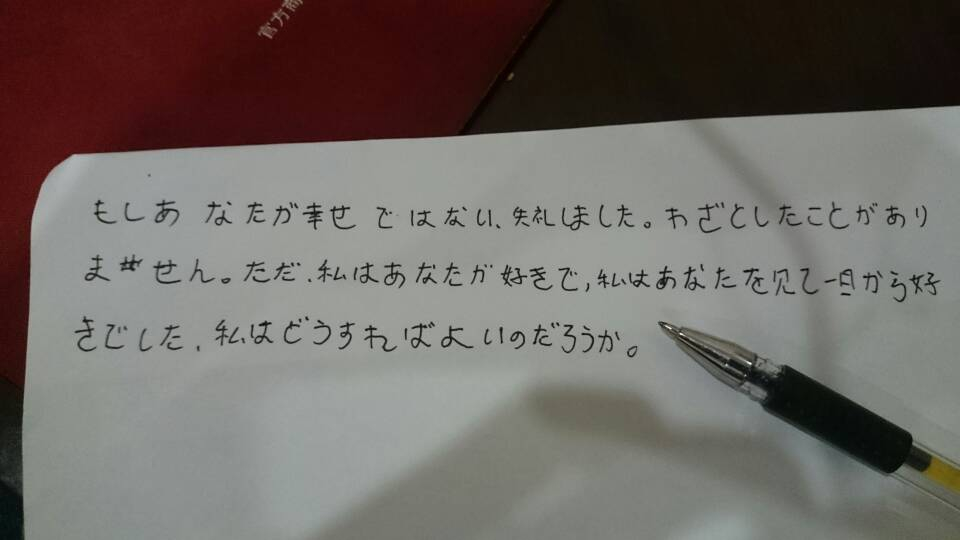 官方商
もしあなたが幸せではない、失礼しました。わざとしたことがあり
ません。ただ、私はあなたが好きで,私はあなたを見て一旦から好
きでした、私はどうすればよいのだろうか。